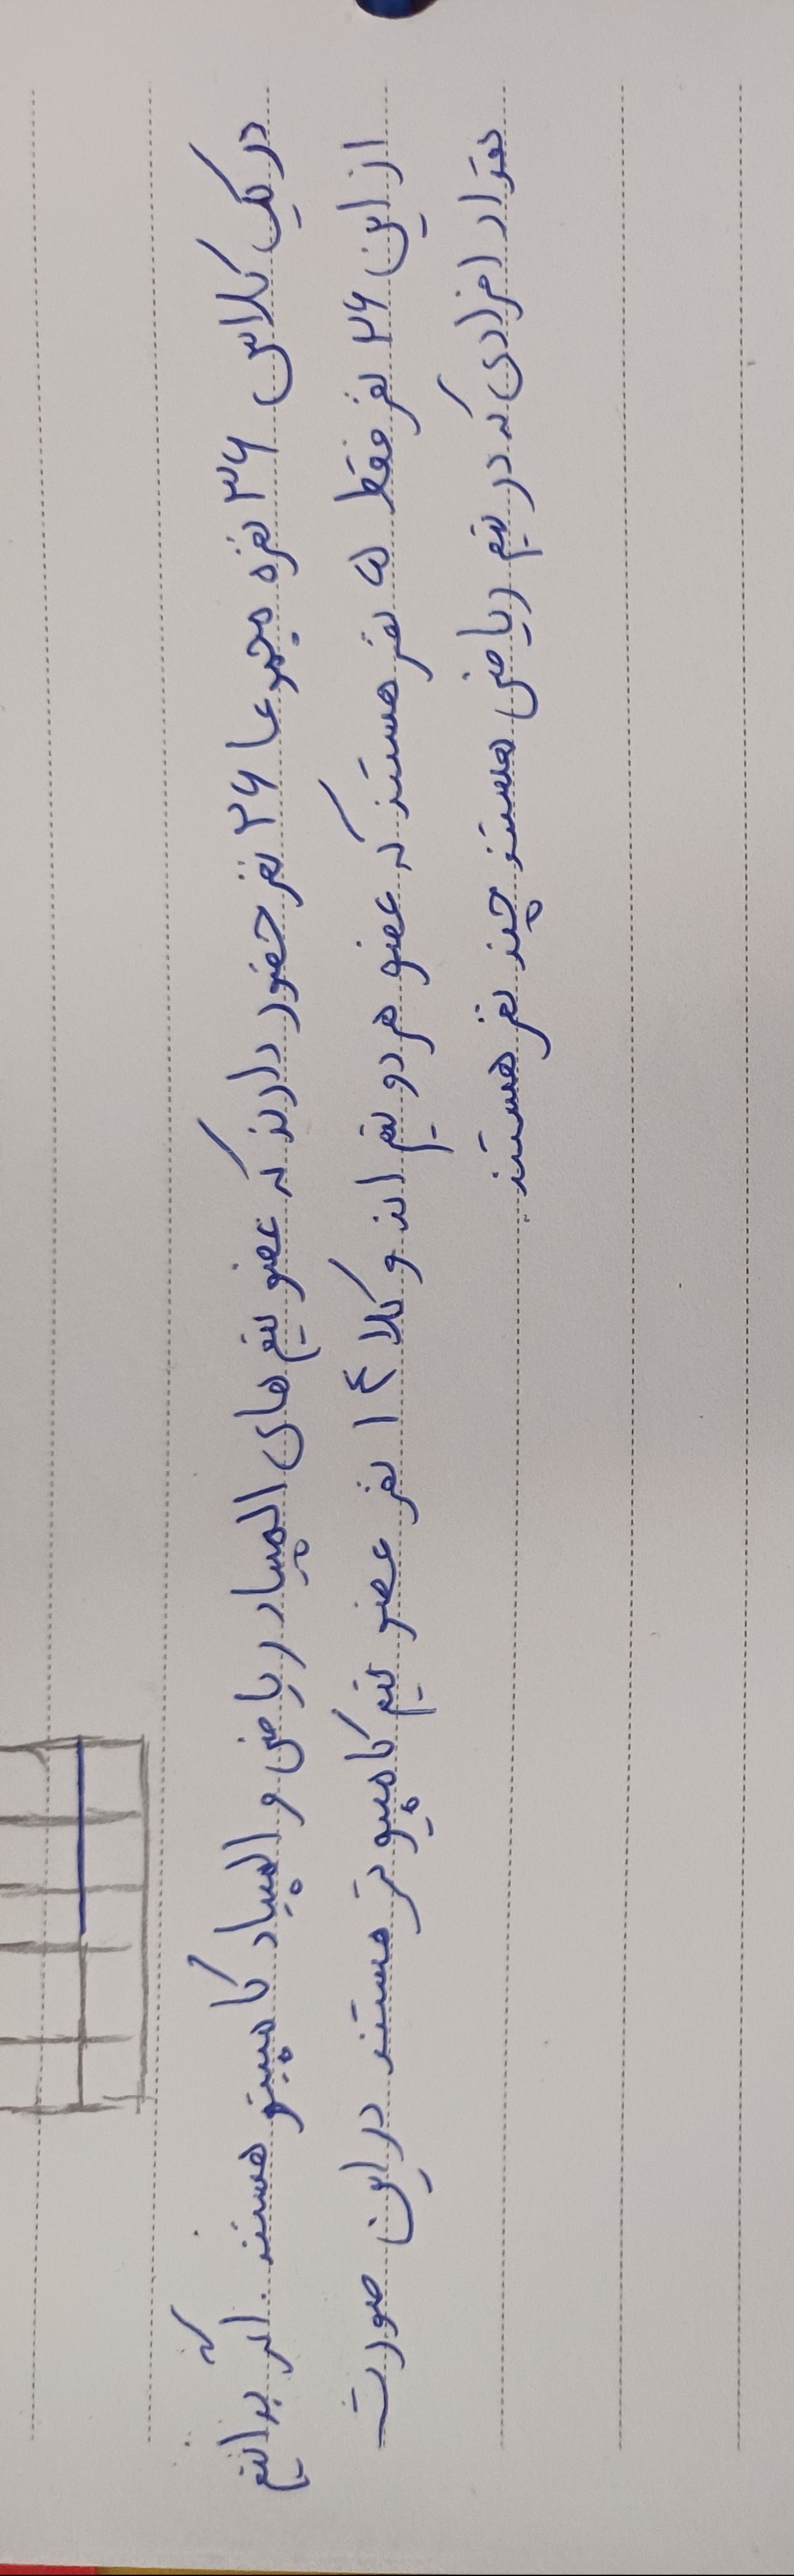 در یک کلاس ۳۶ نفره مجموعا ۲۶ نفر حضور دارند که عضو تیم های المپیاد ریاضی و المپیاد کامپیتو هستند. اگر بدانیم
از این ۲۶ نفر فقط ۵ نفر هستند که عضو هر دو تیم اند و کلا ۱۴ نفر عضو تیم کامپیوتر هستند در این صورت
تعداد افرادی که در تیم ریاضی هستند چند نفر هستند